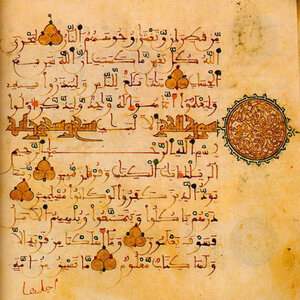 من قطران وتغشى وجوههم النار ليجزي
الله كل نفس ما كسبت ان الله سريع
الحساب هذا بلغ للناس ولينذروا به
وليعلموا انما هو اله وحد وليذكر اولوا
سورة الحجر الالبب تسع وتسعون اية
بسم الله الرحمن الرحيم
الر تلك ايت الكتب وقران مبين
ربما يود الذين كفروا لو كانوا مسلمين
ذرهم ياكلوا ويتمتعوا ويلههم الامل
فسوف يعلمون وما اهلكنا من قرية الا
ولها كتاب معلوم ما تسبق من امة
اجلها